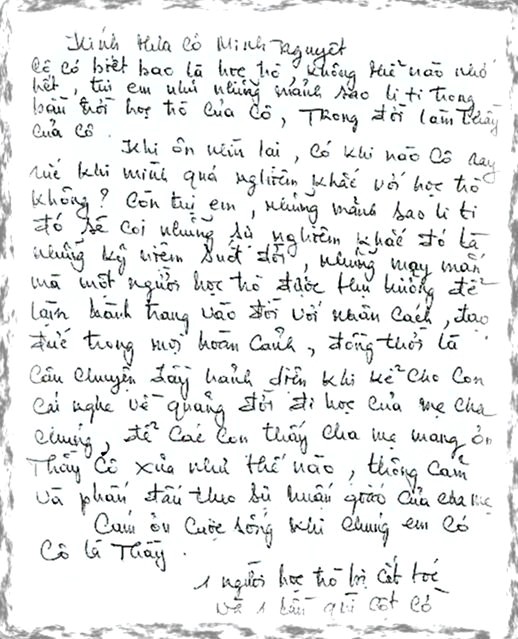 Kính thưa cô Minh Nguyệt
Cô có biết bao là học trò, không thể nào nhớ
hết, tụi em như những mảnh sao li ti trong
bầu trời học trò của Cô, Trong đời làm Thầy
của cô.
Khi ôn nhìn lại, có khi nào Cô day
khi mình quá nghiêm khắc với học trò
không? Còn tụi em, những mảnh sao li ti
đó sẽ coi những sự nghiêm khắc đó là
những kỷ niệm suốt đời, những may mắn
mà một người học trò được thụ hưởng để
làm hành trang vào đời với nhân cách, đạo
đức trong mọi hoàn cảnh, đồng thời là
câu chuyện đầy hãnh diện khi kể cho con
cái nghe về quảng đời đi học của mẹ cha
chúng, để các con thấy cha mẹ mang ơn
Thầy Cô xưa như thế nào, thông cảm
và phấn đấu theo sự huấn giáo của cha mẹ
Cám ơn cuộc sống khi chúng em có
Cô là Thầy.
1 người học trò bị cắt tóc
và 1 lần quì cột cờ